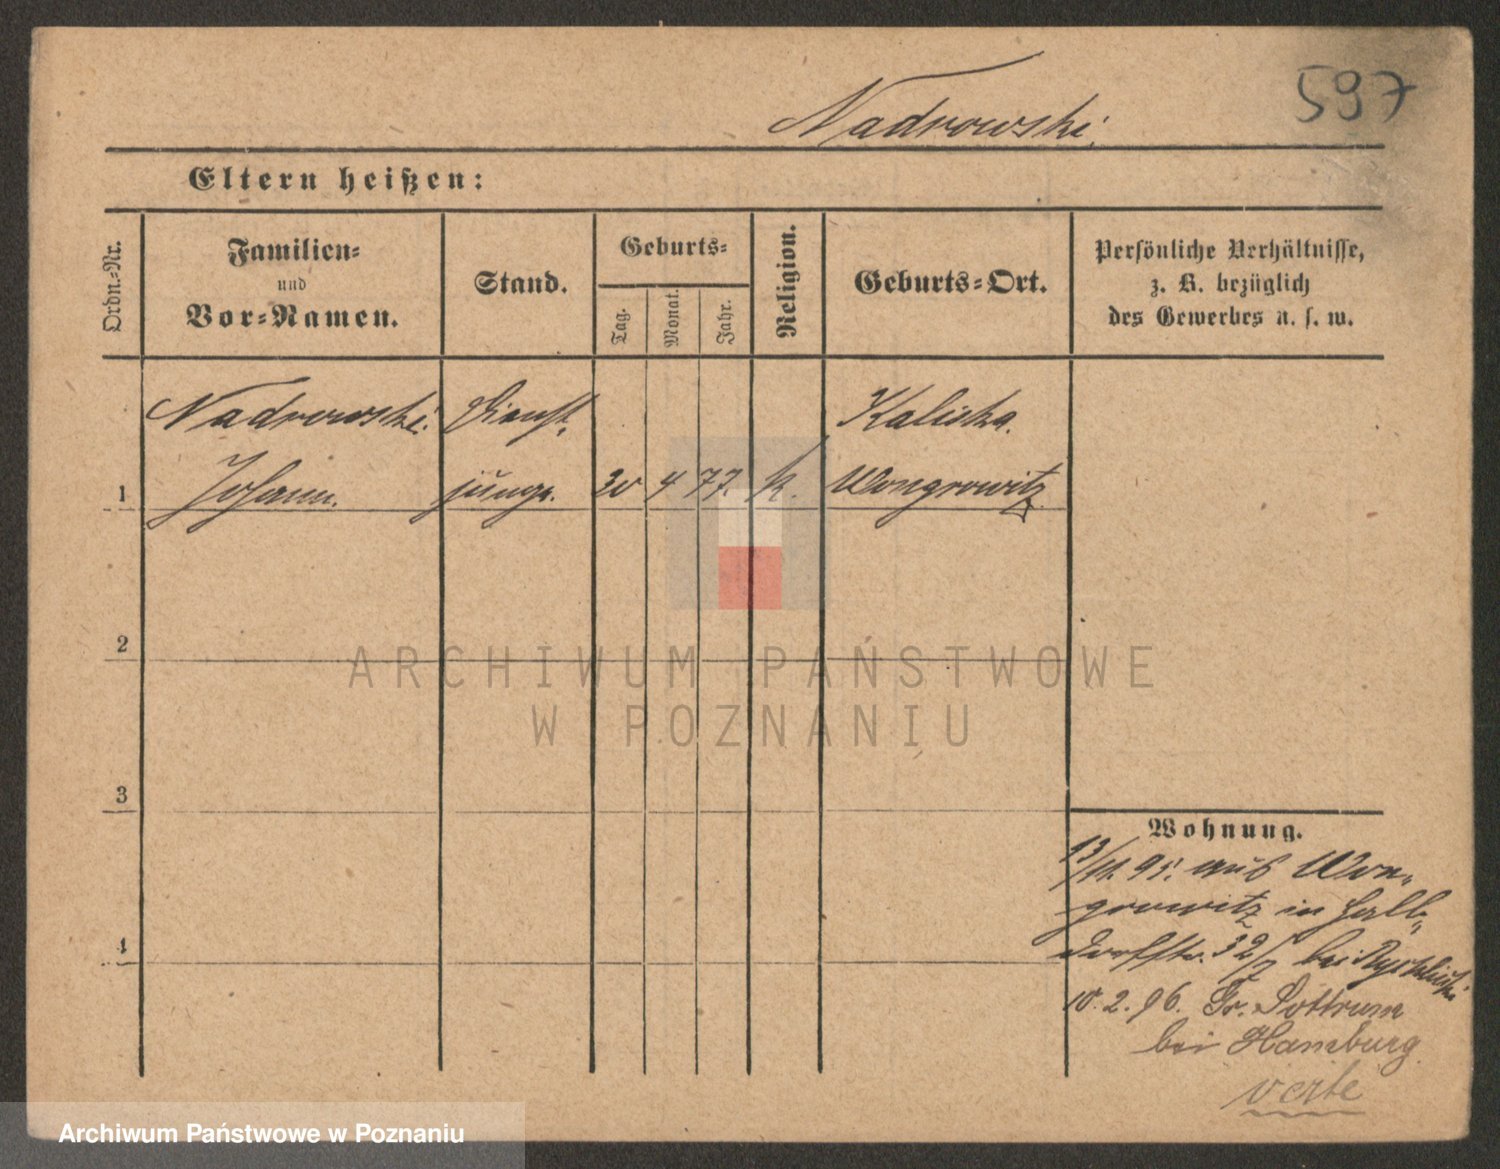 597
Nadrowski.
Eltern heißen:
Ordn.-Nr.
Familien-
und
Vor-Namen.
Stand.
Geburts-
Tag.
Monat.
Jahr.
Religion.
Geburts-Ort.
Persönliche Verhältnisse,
z. B. bezüglich
des Gewerbes u. s. w.
Nadrowski. Dienst- Kaliska.
1 Johann. junge. 30 4 77. k. Wongrowitz
2
3
4
Wohnung.
13/11. 95. aus Won-
growitz in Halb-
dorfstr. 32/7 bei
10. 2. 96. Gr. Sottrum
bei Hamburg
verte
ARCHIWUM PAŃSTWOWE
W POZNANIU
Archiwum Państwowe w Poznaniu